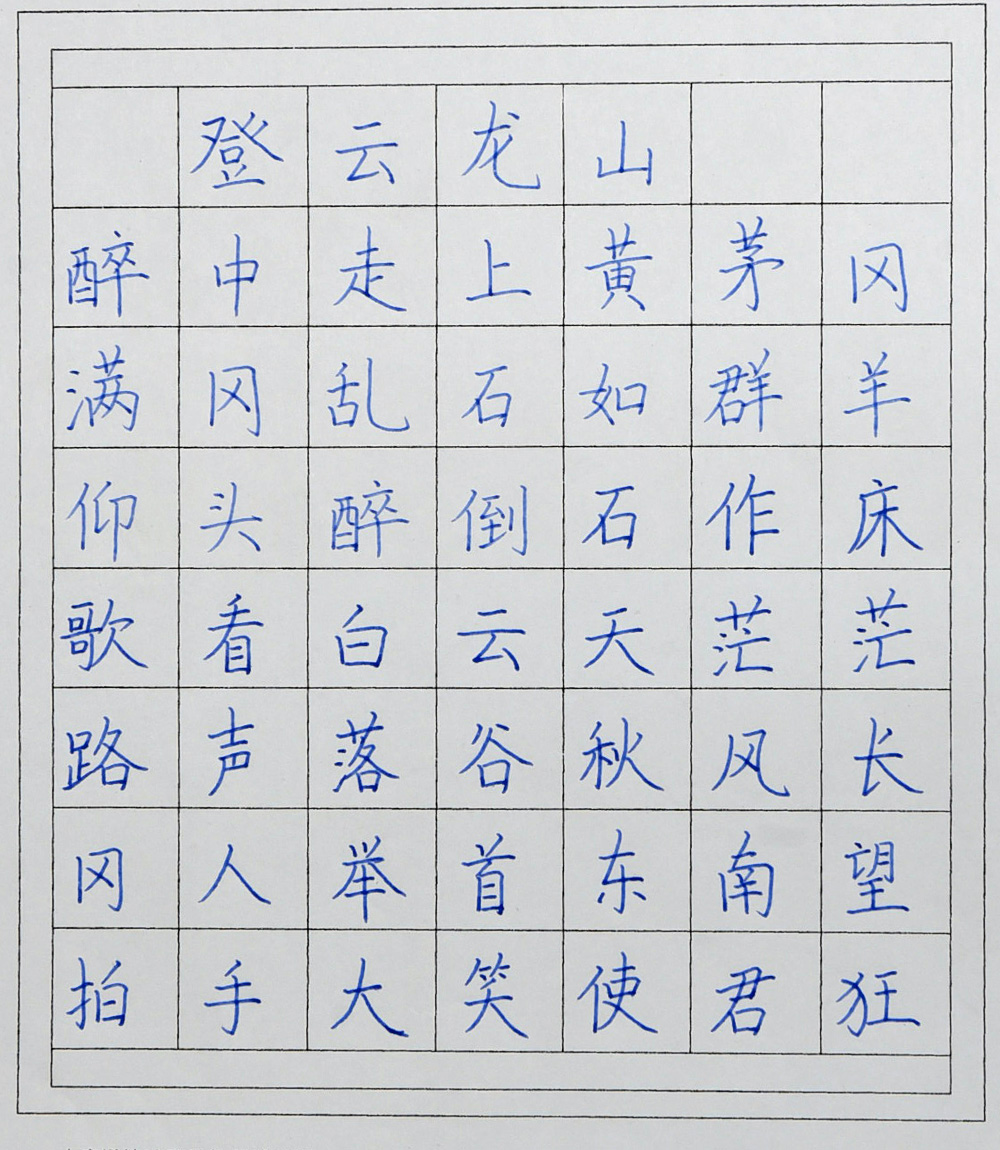 登云龙山
醉中走上黄茅冈
满冈乱石如群羊
仰头醉倒石作床
歌看白云天茫茫
路声落谷秋风长
冈人举首东南望
拍手大笑使君狂